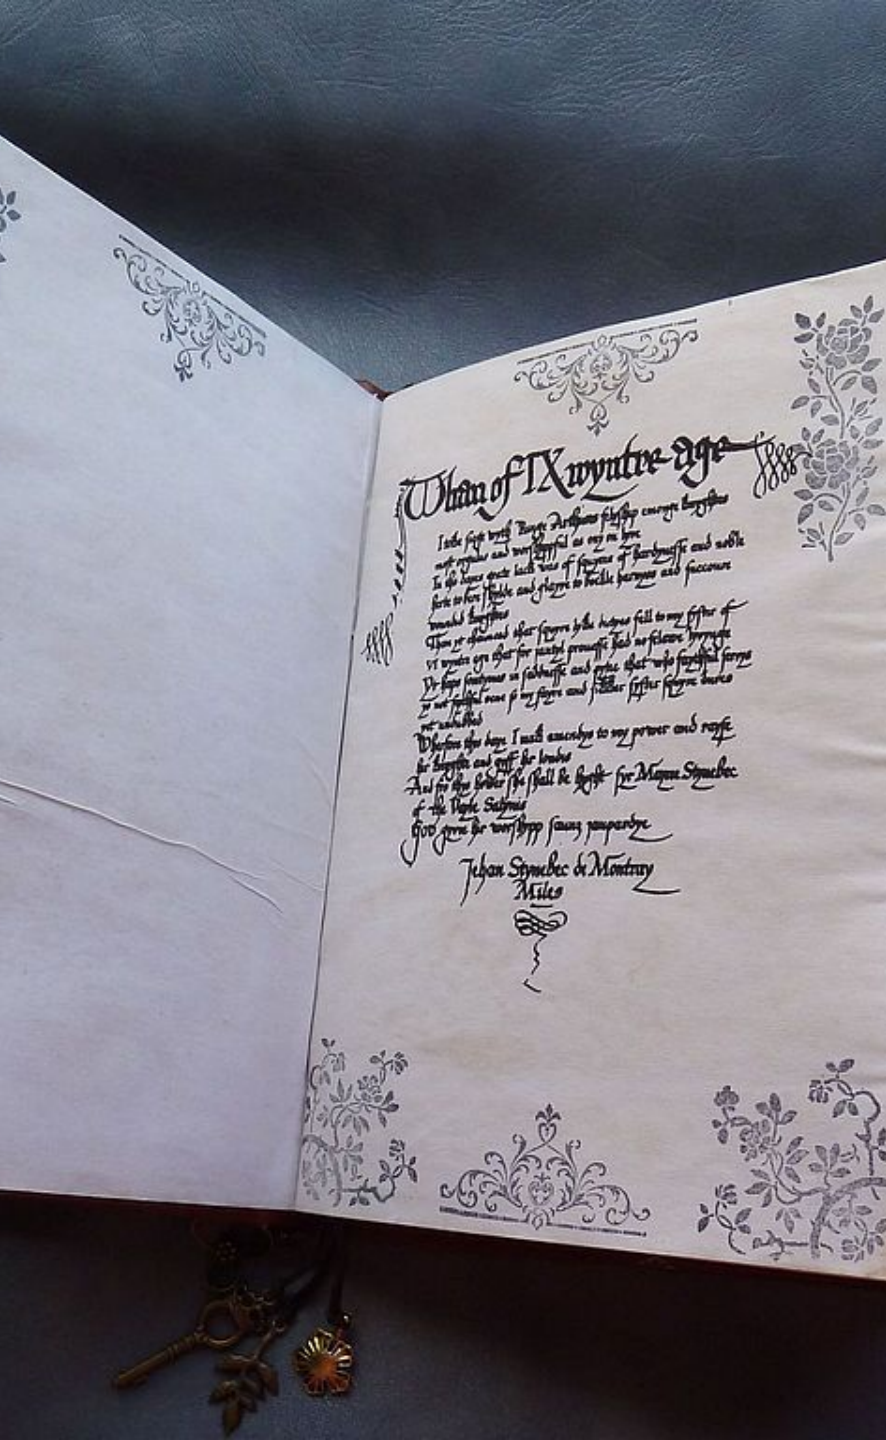 Whan of IX wyntre age
I with Kynge Arthurs felyshyp emonge knyghtes
most and worshypful as ony on lyve
In his dayes grete lack was of squyers of hardynesse and noble
herte to bere shylde and glayve to bockle harneys and succoure
wounded knyghtes
Than yt chaunced that squyre lyke dutyes fell to my syster of
vi wyntre age that for jantyl prouesse had no felawe lyvynge
Yt haps somtymes in saddnesse and pytie that who faythfull serves
ys not faythful sene so my fayre and syster squyre dures
yet undubbed
Wherfore thys daye I mak amendys to my power and rayse
hir knyghte and gyff hir loudis
And fro thys howre she shall be hyght syr Mayne Stynebec
of the Vayle Salynis
God gyve hir worshypp saunz jaupardye
Jehan Stynebec de Montray
Miles